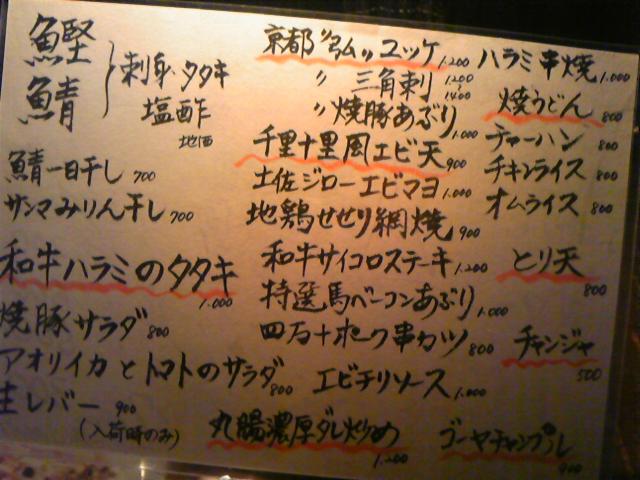 鰹
鯖
刺身・タタキ
塩酢
地酒
鯖一日干し 700
サンマみりん干し 700
和牛ハラミのタタキ 1.000
焼豚サラダ 800
アオリイカとトマトのサラダ 800
生レバー 900
(入荷時のみ)
京都〃弘〃ユッケ 1.200
〃 三角刺 1200 1400
〃焼豚あぶり 1.000
千里十里風エビ天 900
土佐ジローエビマヨ 1.000
地鶏せせり網焼 900
和牛サイコロステーキ 1.200
特選馬ベーコンあぶり 1.000
四万十ポーク串カツ 800
エビチリソース 1.000
丸腸濃厚ダレ炒め 1.200
ハラミ串焼 1.000
焼うどん 800
チャーハン 800
チキンライス 800
オムライス 800
とり天 800
チャンジャ 500
ゴーヤチャンプル